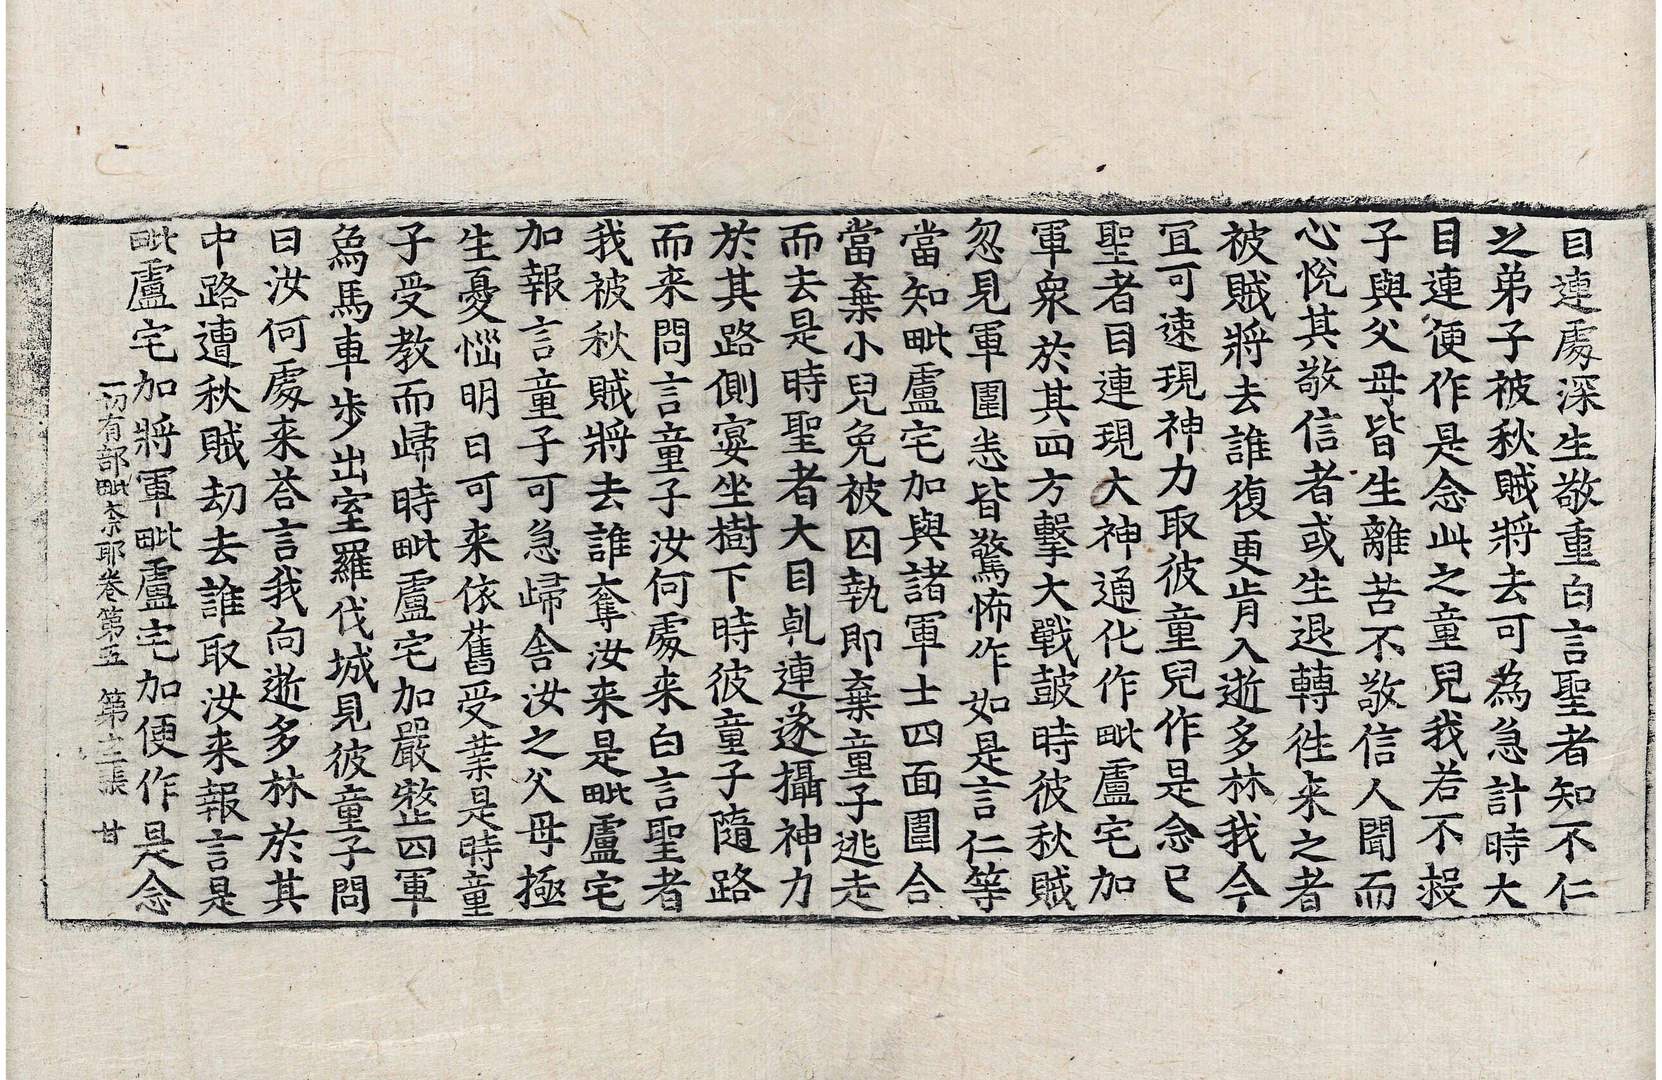 目連處深生敬重白言聖者知不仁
之弟子被秋賊將去可為急計時大
目連便作是念此之童兒我若不捄
子與父母皆生離苦不敬信人聞而
心悅其敬信者或生退轉徃来之者
被賊將去誰復更肯入逝多林我今
冝可速現神力取彼童兒作是念已
聖者目連現大神通化作毗盧宅加
軍衆於其四方擊大戰鼓時彼秋賊
忽見軍圍悉皆驚怖作如是言仁等
當知毗盧宅加與諸軍士四面圍合
當棄小兒免被囚執即棄童子逃走
而去是時聖者大目乹連遂攝神力
於其路側宴坐樹下時彼童子隨路
而来問言童子汝何處来白言聖者
我被秋賊將去誰奪汝来是毗盧宅
加報言童子可急歸舍汝之父母極
生憂惱明日可来依舊受業是時童
子受教而歸時毗盧宅加嚴整四軍
烏馬車步出室羅伐城見彼童子問
曰汝何處来荅言我向逝多林於其
中路遭秋賊劫去誰取汝来報言是
毗盧宅加將軍毗盧宅加便作是念
一切有部毗柰耶卷第五 第十二張 甘